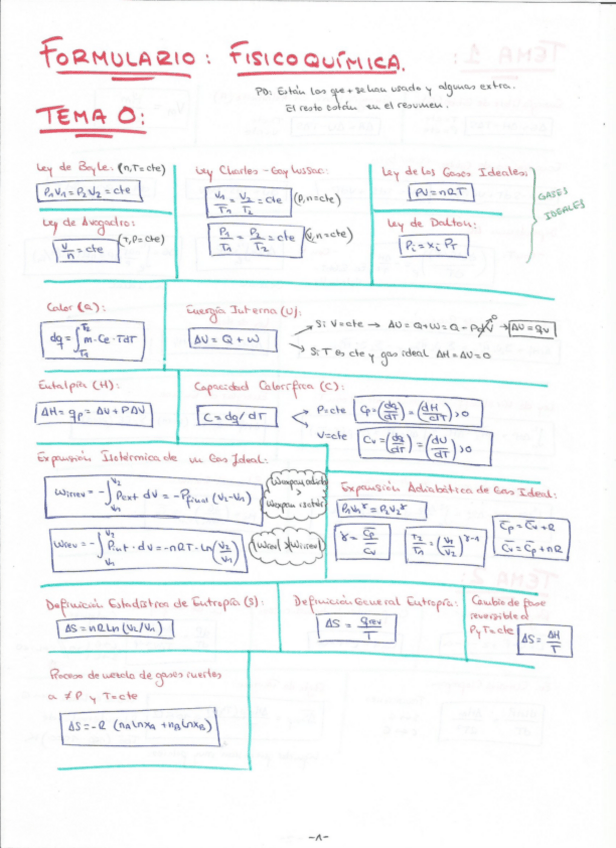 FORMULARIO: FISICOQUÍMICA.
PD: Están las que + se han usado y algunas extra.
El resto están en el resumen.
TEMA 0:
Ley de Boyle: (n,T=cte)
P₁V₁=P₂V₂=cte
Ley Charles-Gay Lussac:
V₁/T₁ = V₂/T₂ = cte (P,n=cte)
P₁/T₁ = P₂/T₂ = cte (V,n=cte)
Ley de los Gases Ideales:
PV=nRT
GASES IDEALES
Ley de Avogadro:
V/n = cte (T,P=cte)
Ley de Dalton:
Pi = xi PT
Calor (Q):
dq = ∫T₁T₂ m·Ce·TdT
Energía Interna (U):
ΔU = Q + W
Si V=cte → ΔU=Q+W=Q-PΔV⁰ → ΔU=qv
Si T es cte y gas ideal ΔH=ΔU=0
Entalpía (H):
ΔH=qp=ΔU+PΔV
Capacidad Calorífica (C):
C=dq/dT
P=cte Cp=(dq/dT)=(dH/dT)>0
V=cte Cv=(dq/dT)=(dU/dT)>0
Expansión Isotérmica de un Gas Ideal:
Wirrev=-∫V₁V₂ Pext dV=-Pfinal(V₂-V₁)
Wrev=-∫V₁V₂ Pint·dV=-nRT·Ln(V₂/V₁)
Wexpan adiab > Wexpan isotér
|Wrev|>|Wirrev|
Expansión Adiabática de Gas Ideal:
P₁V₁^γ=P₂V₂^γ
γ=Cp/Cv
T₂/T₁=(V₁/V₂)^γ-1
C̅p=C̅v+R
C̅v=C̅p+nR
Definición Estadística de Entropía (S):
ΔS=nRLn(V₂/V₁)
Definición General Entropía:
ΔS=qrev/T
Cambio de fase
reversible a
P y T=cte
ΔS=ΔH/T
Proceso de mezcla de gases inertes
a ≠P y T=cte
ΔS=-R (nALnxA+nBLnxB)
-1-